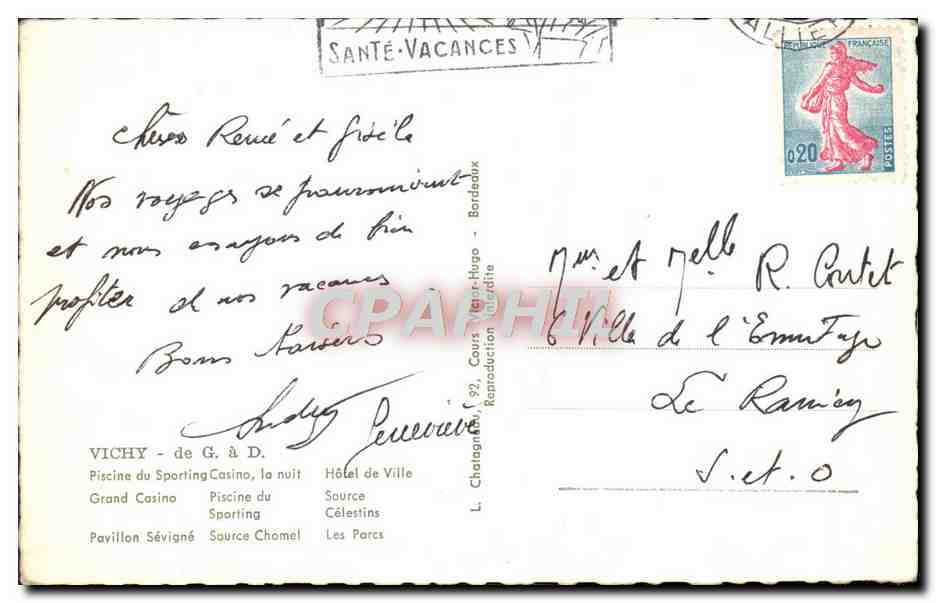 SANTÉ-VACANCES
ALLIER
RÉPUBLIQUE FRANÇAISE
0,20
POSTES
Chères Renée et Gisèle
Nos voyages se poursuivent
et nous essayons de bien
profiter de nos vacances
Bons baisers
Geneviève
VICHY - de G. à D.
Piscine du Sporting Casino, la nuit Hôtel de Ville
Grand Casino Piscine du Sporting Source Célestins
Pavillon Sévigné Source Chomel Les Parcs
L. Chatagneau, 92, Cours Victor-Hugo - Bordeaux
Reproduction Interdite
CPAPHIL
et Melle R. Coutet
6 Villa de l'Ermitage
Le Raincy
S. et. O